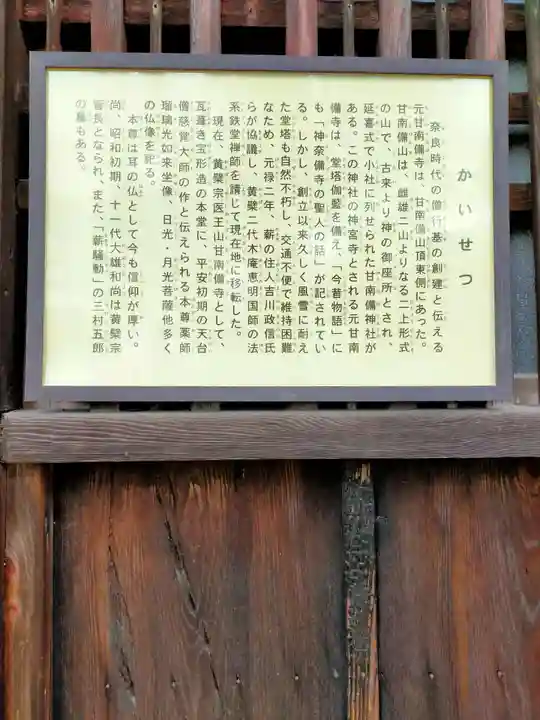 かいせつ
奈良時代の僧行基の創建と伝える
元甘南備寺は、甘南備山頂東側にあった。
甘南備山は、雌雄二山よりなる二上形式
の山で、古来より神の御座所とされ、
延喜式で小社に列せられた甘南備神社が
ある。この神社の神宮寺とされる元甘南
備寺は、堂塔伽藍を備え、「今昔物語」に
も「神奈備寺の聖人の話」が記されてい
る。しかし、創立以来久しく風雪に耐え
た堂塔も自然不朽し、交通不便で維持困難
なため、元禄二年、薪の住人吉川政信氏
らが協議し、黄檗二代木庵恵明国師の法
系鉄堂禅師を請じて現在地に移転した。
現在、黄檗宗医王山甘南備寺として、
瓦葺き宝形造の本堂に、平安初期の天台
僧慈覚大師の作と伝えられる本尊薬師
瑠璃光如来坐像、日光・月光菩薩他多く
の仏像を祀る。
本尊は耳の仏として今も信仰が厚い。
尚、昭和初期、十一代大雄和尚は黄檗宗
管長となられ、また、「薪騒動」の三村五郎
の墓もある。